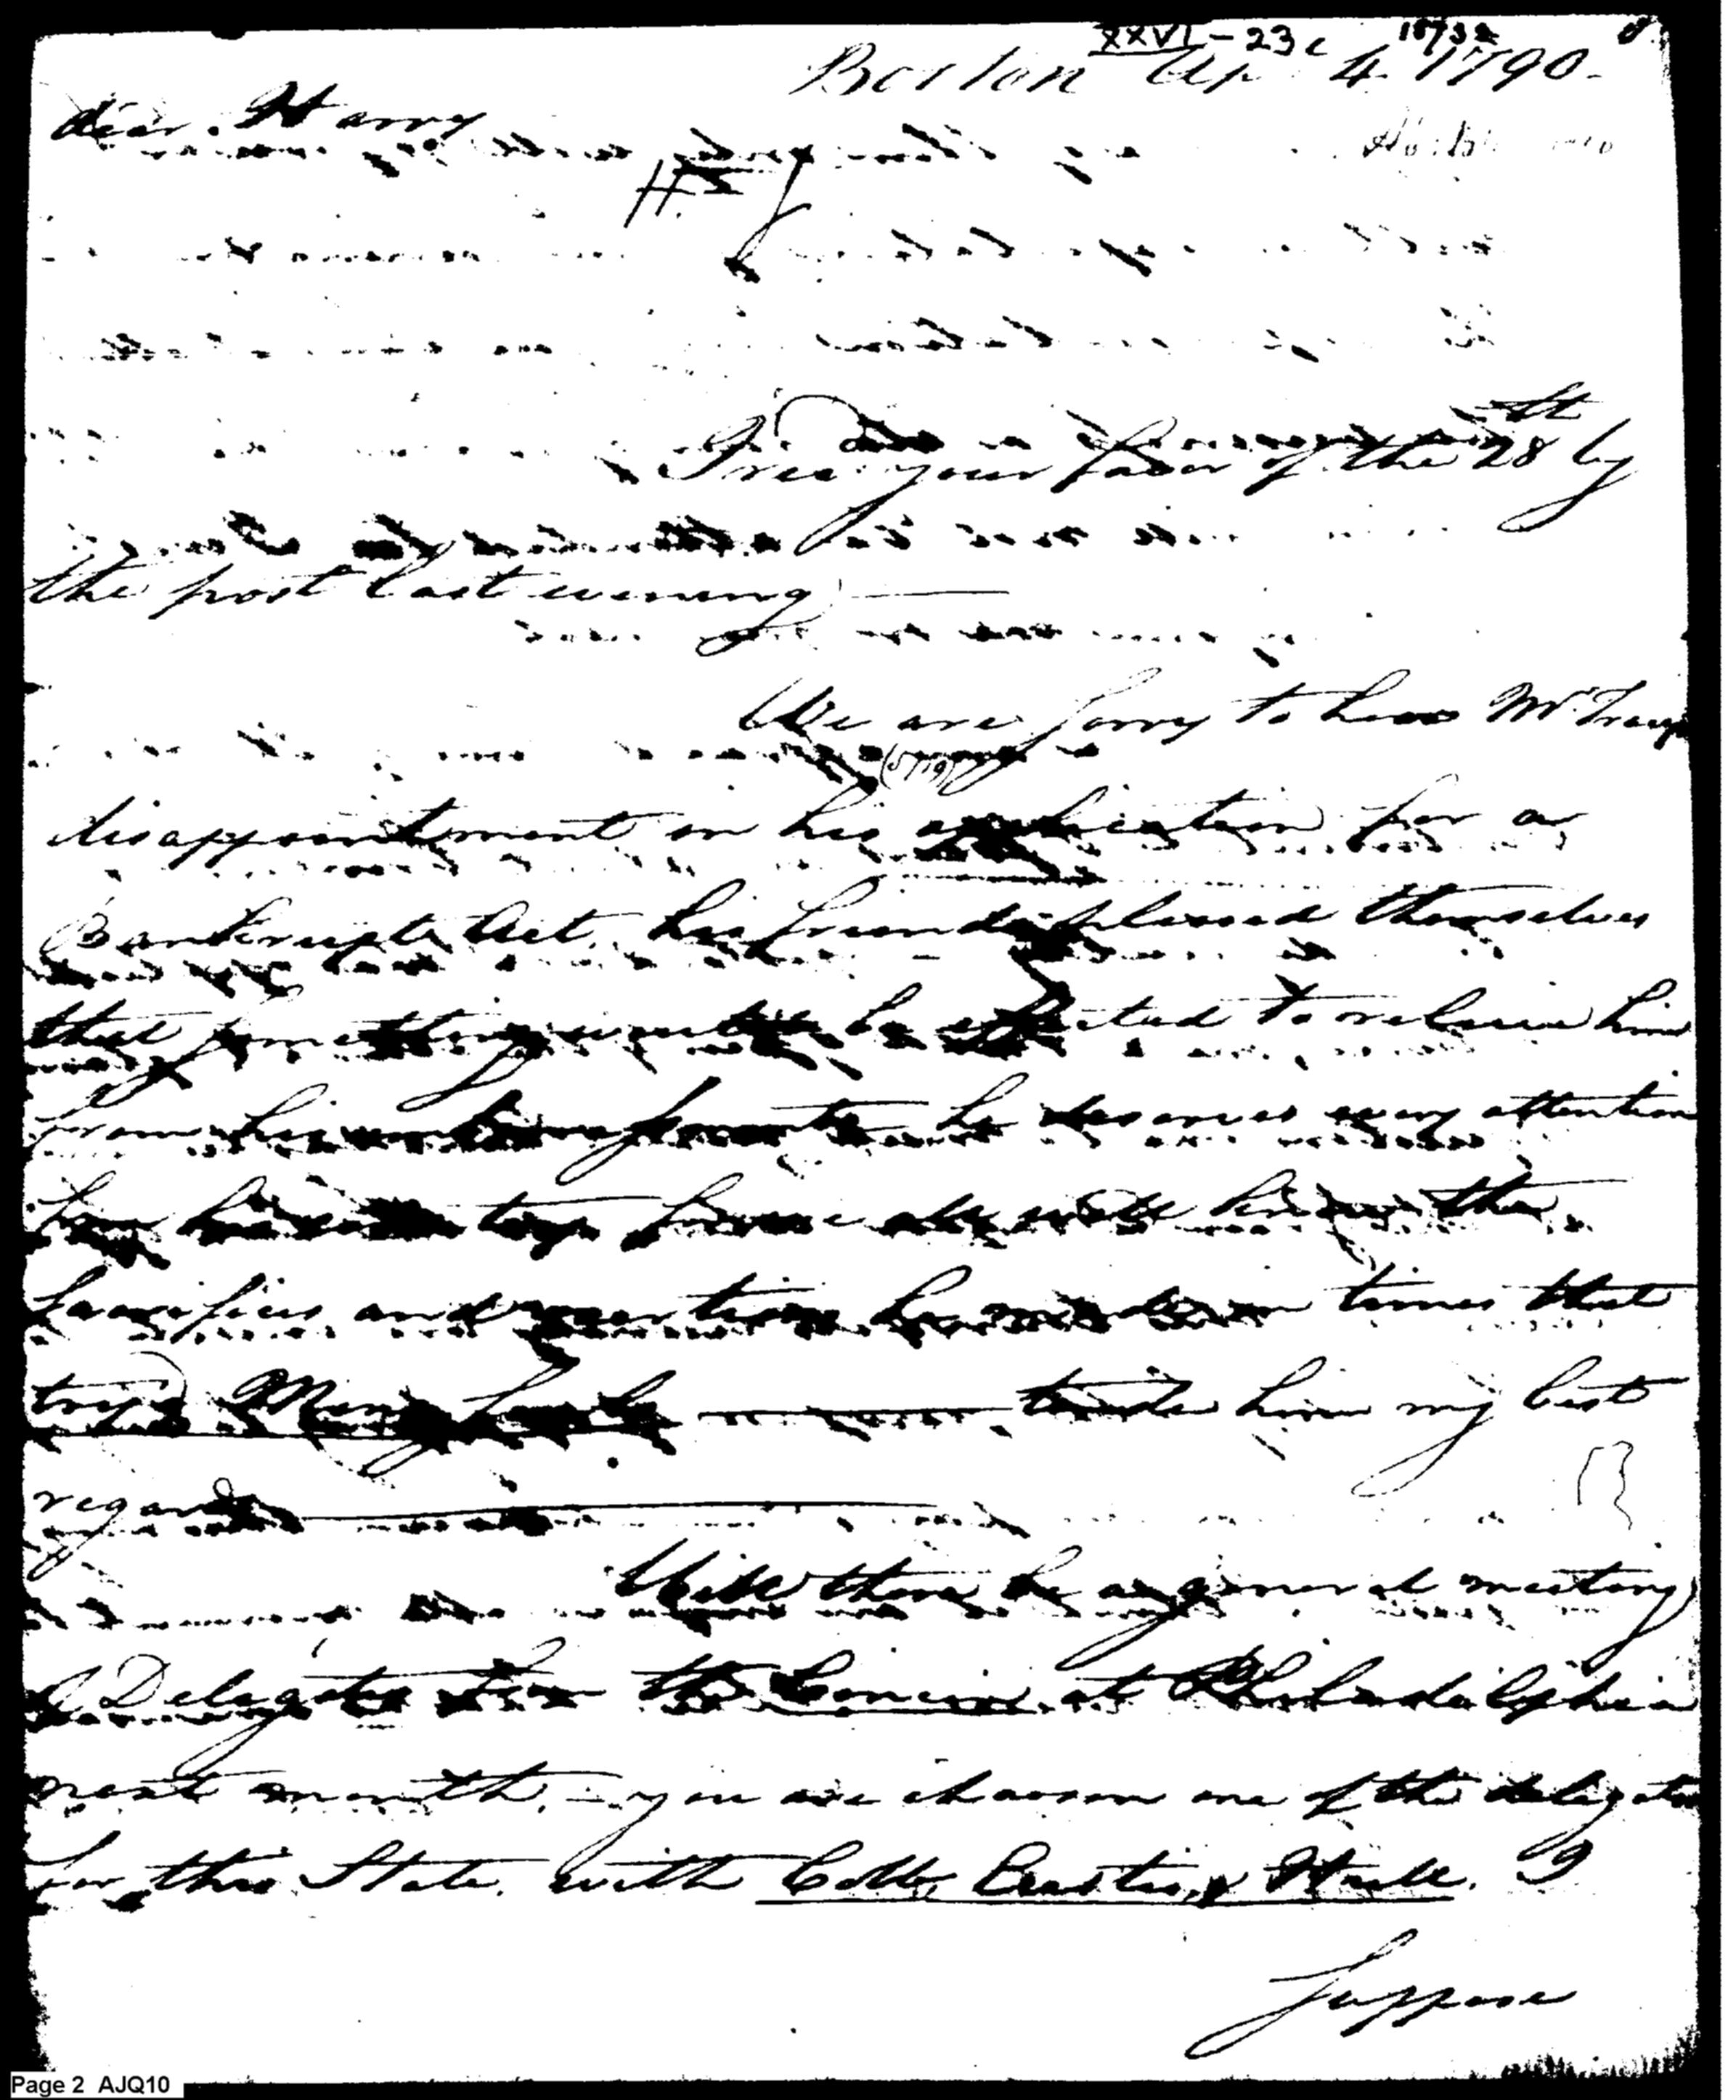 XXVI - 23c
Boston Ap 4. 1790.
dear Harry
I rec. your favor of the 28th by
the post last evening
We are sorry to hear Mr
disappointment in his application for a
Bankrupt Act, his friends pleased themselves
that something would be effected to relieve him
from his embarrassments he deserves every attention
all well know the
sacrifices and exertions he made in times that
try'd Mens souls tender him my best
regards
Will there be a general meeting
of Delegates from the Cincin. at Philadelphia
next month, - you are choosen one of the delegates
for this State, with Cobb, Eustis, & Hull. I
suppose
Page 2 AJQ10